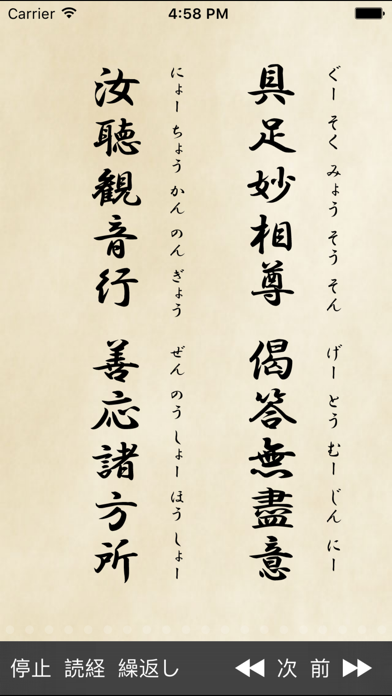 Carrier 4:58 PM
具足妙相尊 偈答無盡意
ぐー そく みょう そう そん げー とう むー じん にー
汝聴観音行 善応諸方所
にょー ちょう かん のん ぎょう ぜん のう しょー ほう しょー
停止 読経 繰返し 次 前